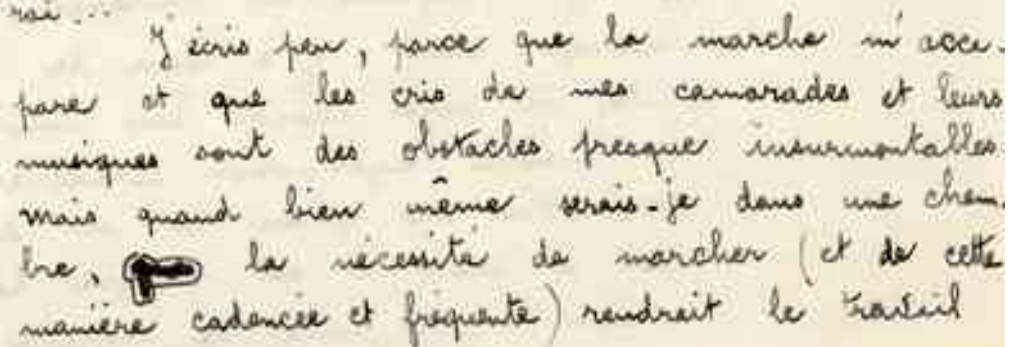 rai...
J'écris peu, parce que la marche m'acca-
pare et que les cris de mes camarades et leurs
musiques sont des obstacles presque insurmontables.
Mais quand bien même serais-je dans une cham-
bre, la nécessité de marcher (et de cette
manière cadencée et fréquente) rendrait le travail